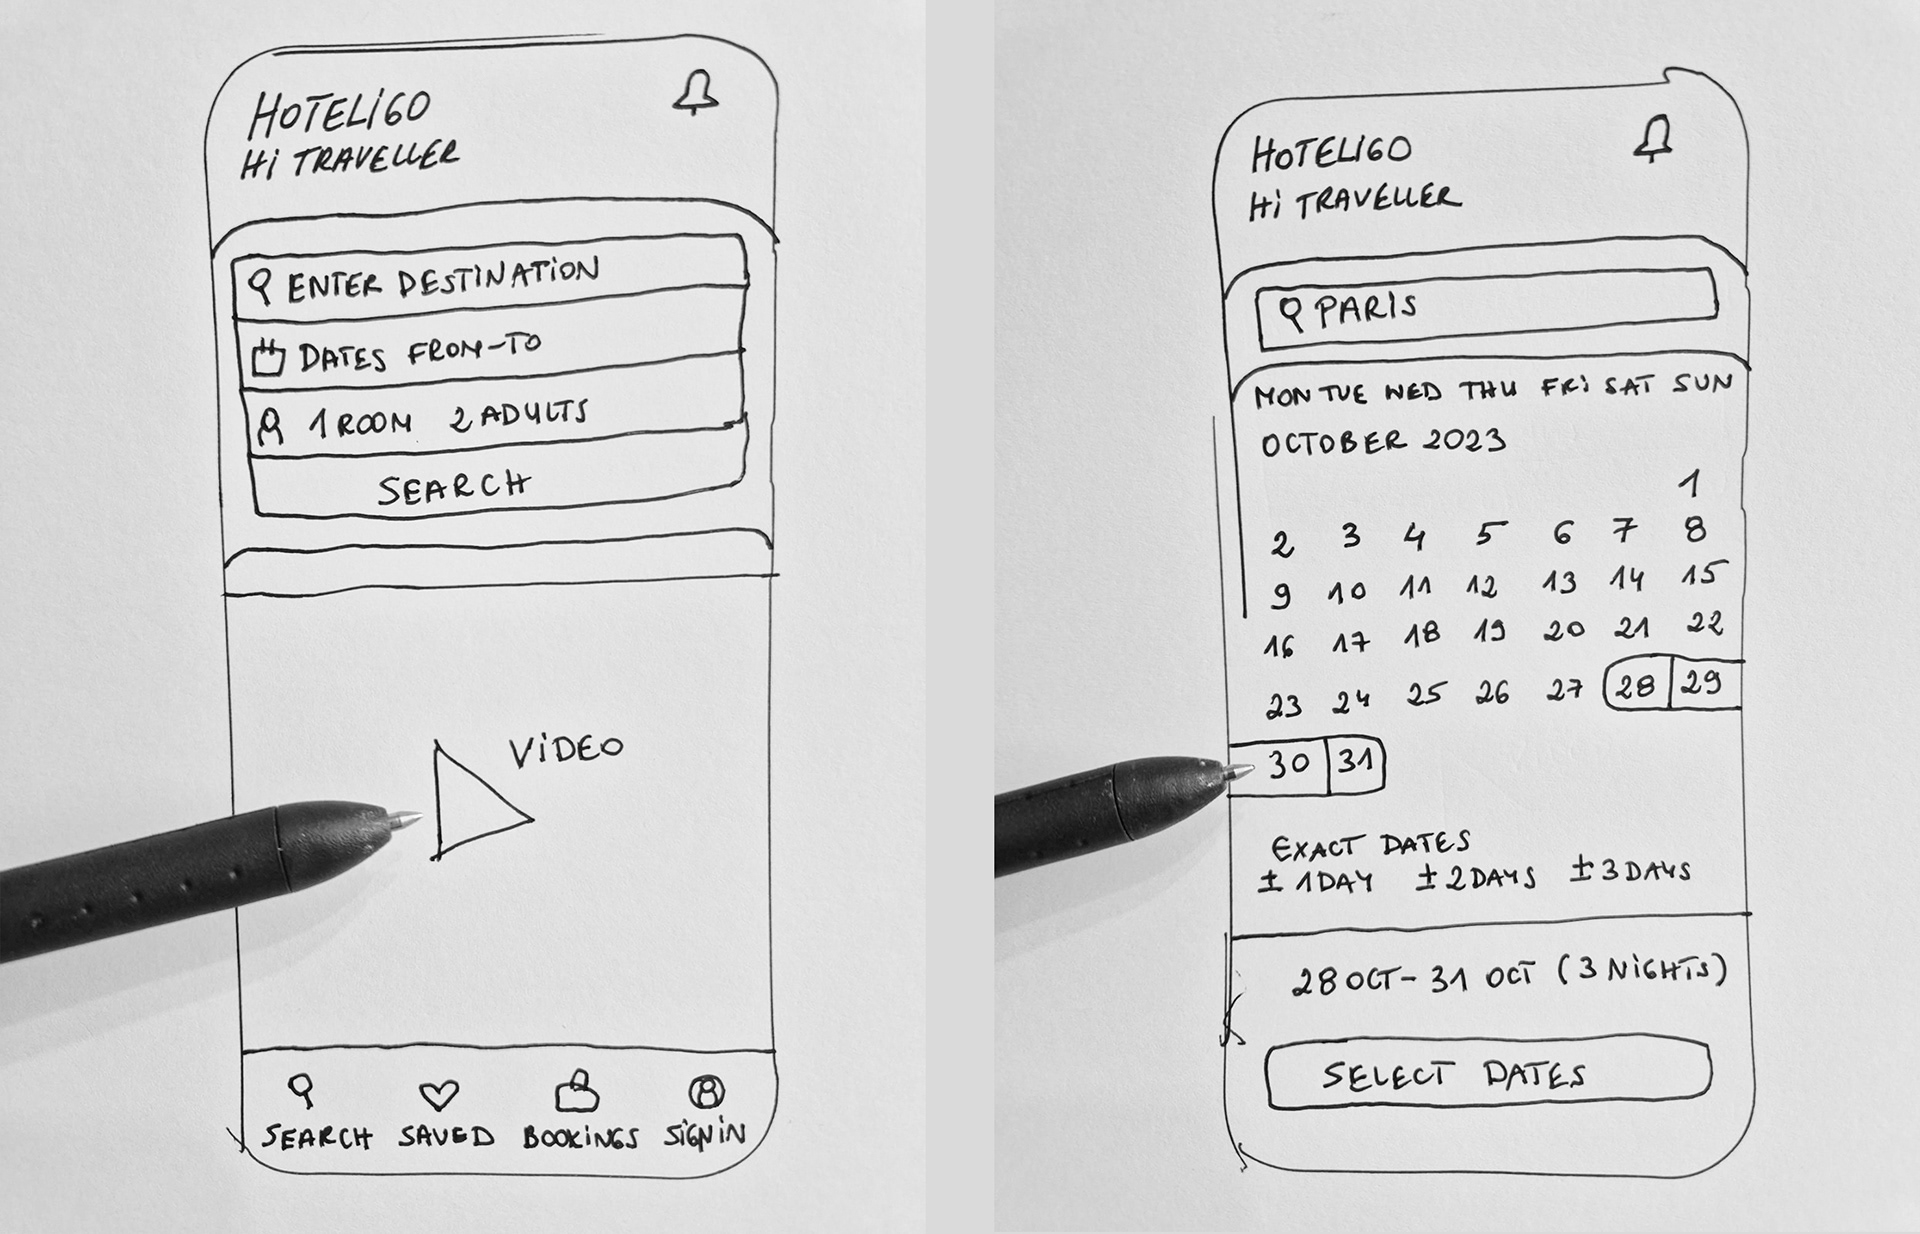 HOTELIGO
Hi TRAVELLER
ENTER DESTINATION
DATES FROM-TO
1 ROOM 2 ADULTS
SEARCH
VIDEO
SEARCH SAVED BOOKINGS SIGN IN
HOTELIGO
Hi TRAVELLER
PARIS
MON TUE WED THU FRI SAT SUN
OCTOBER 2023
1
2 3 4 5 6 7 8
9 10 11 12 13 14 15
16 17 18 19 20 21 22
23 24 25 26 27 28 29
30 31
EXACT DATES
± 1 DAY ± 2 DAYS ± 3 DAYS
28 OCT - 31 OCT (3 NIGHTS)
SELECT DATES